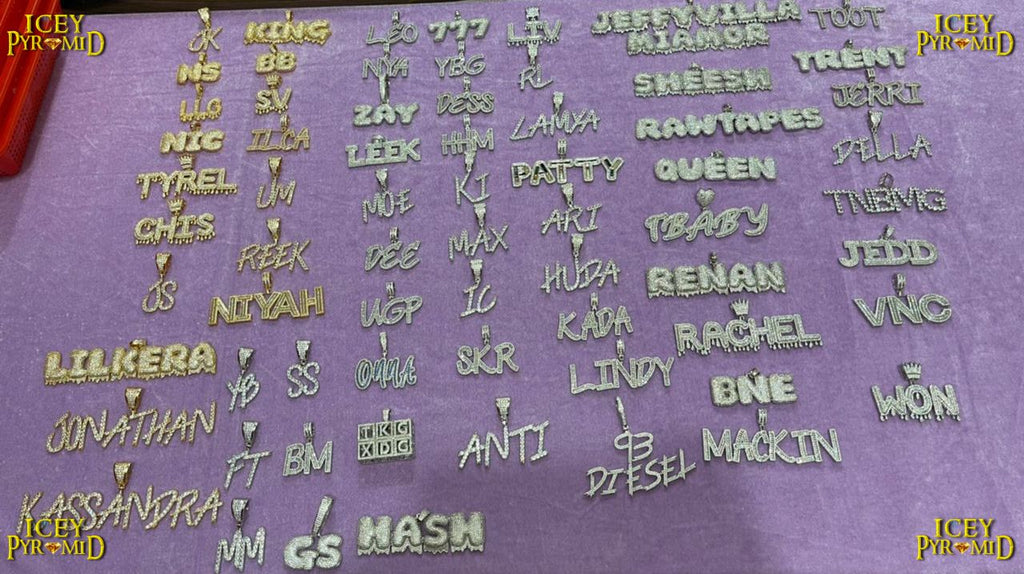 ICEY
PYRAMID
ICEY
PYRAMID
JK
KING
LEO
777
LIV
JEFFYVILLA
MIAMOR
TOOT
NS
BB
NYA
YBG
RL
SHEESH
TRENT
LLG
SV
ZAY
DESS
LAMYA
RAWTAPES
JERRI
NIC
LEEK
HHM
PATTY
QUEEN
DELLA
TYREL
UM
MOE
KI
ARI
TBABY
TNBMG
CHI'S
REEK
DEE
MAX
HUDA
RENAN
JEDD
NIYAH
UGP
IC
KADA
RACHEL
VNC
LILKERA
YB
SS
SKR
LINDY
BNE
WON
JONATHAN
FT
BM
TKG
XDG
ANTI
DIESEL
MACKIN
KASSANDRA
MM
GS
MA'SM
ICEY
PYRAMID
ICEY
PYRAMID